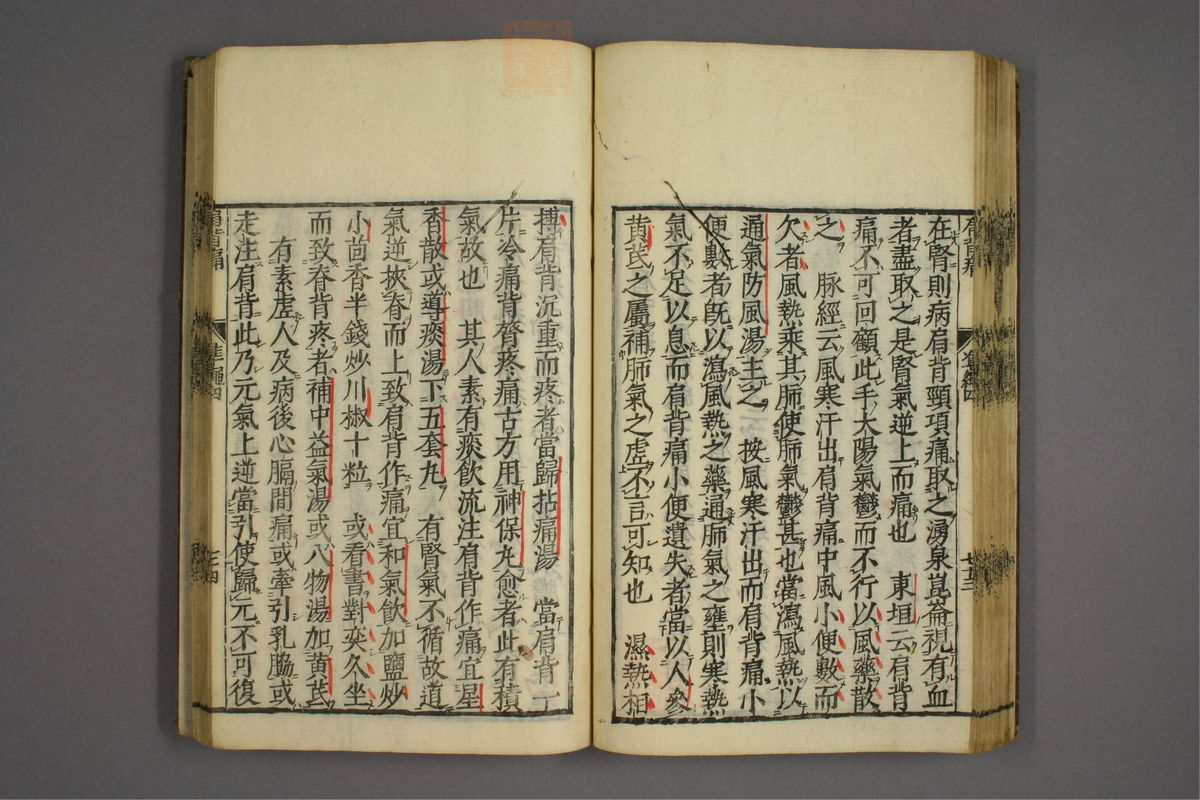 在腎則病肩背頸項痛取之湧泉崑崙視有血
者盡取之是腎氣逆上而痛也 東垣云肩背
痛不可回顧此手太陽氣鬱而不行以風藥散
之 脉經云風寒汗出肩背痛中風小便數而
欠者風熱乘其肺使肺氣鬱甚也當瀉風熱以
通氣防風湯主之 按風寒汗出而肩背痛小
便數者旣以瀉風熱之藥通肺氣之壅則寒熱
氣不足以息而肩背痛小便遺失者當以人參
黃芪之屬補肺氣之虛不言可知也 濕熱相
搏肩背沉重而疼者當歸拈痛湯 當肩背一
片冷痛背膂疼痛古方用神保丸愈者此有積
氣故也 其人素有痰飲流注肩背作痛宜星
香散或導痰湯下五套丸 有腎氣不循故道
氣逆挾脊而上致肩背作痛宜和氣飲加鹽炒
小茴香半錢炒川椒十粒 或看書對奕久坐
而致脊背疼者補中益氣湯或八物湯加黃芪
有素虛人及病後心膈間痛或牽引乳脇或
走注肩背此乃元氣上逆當引使歸元不可復
肩背痛 準繩四 七十四